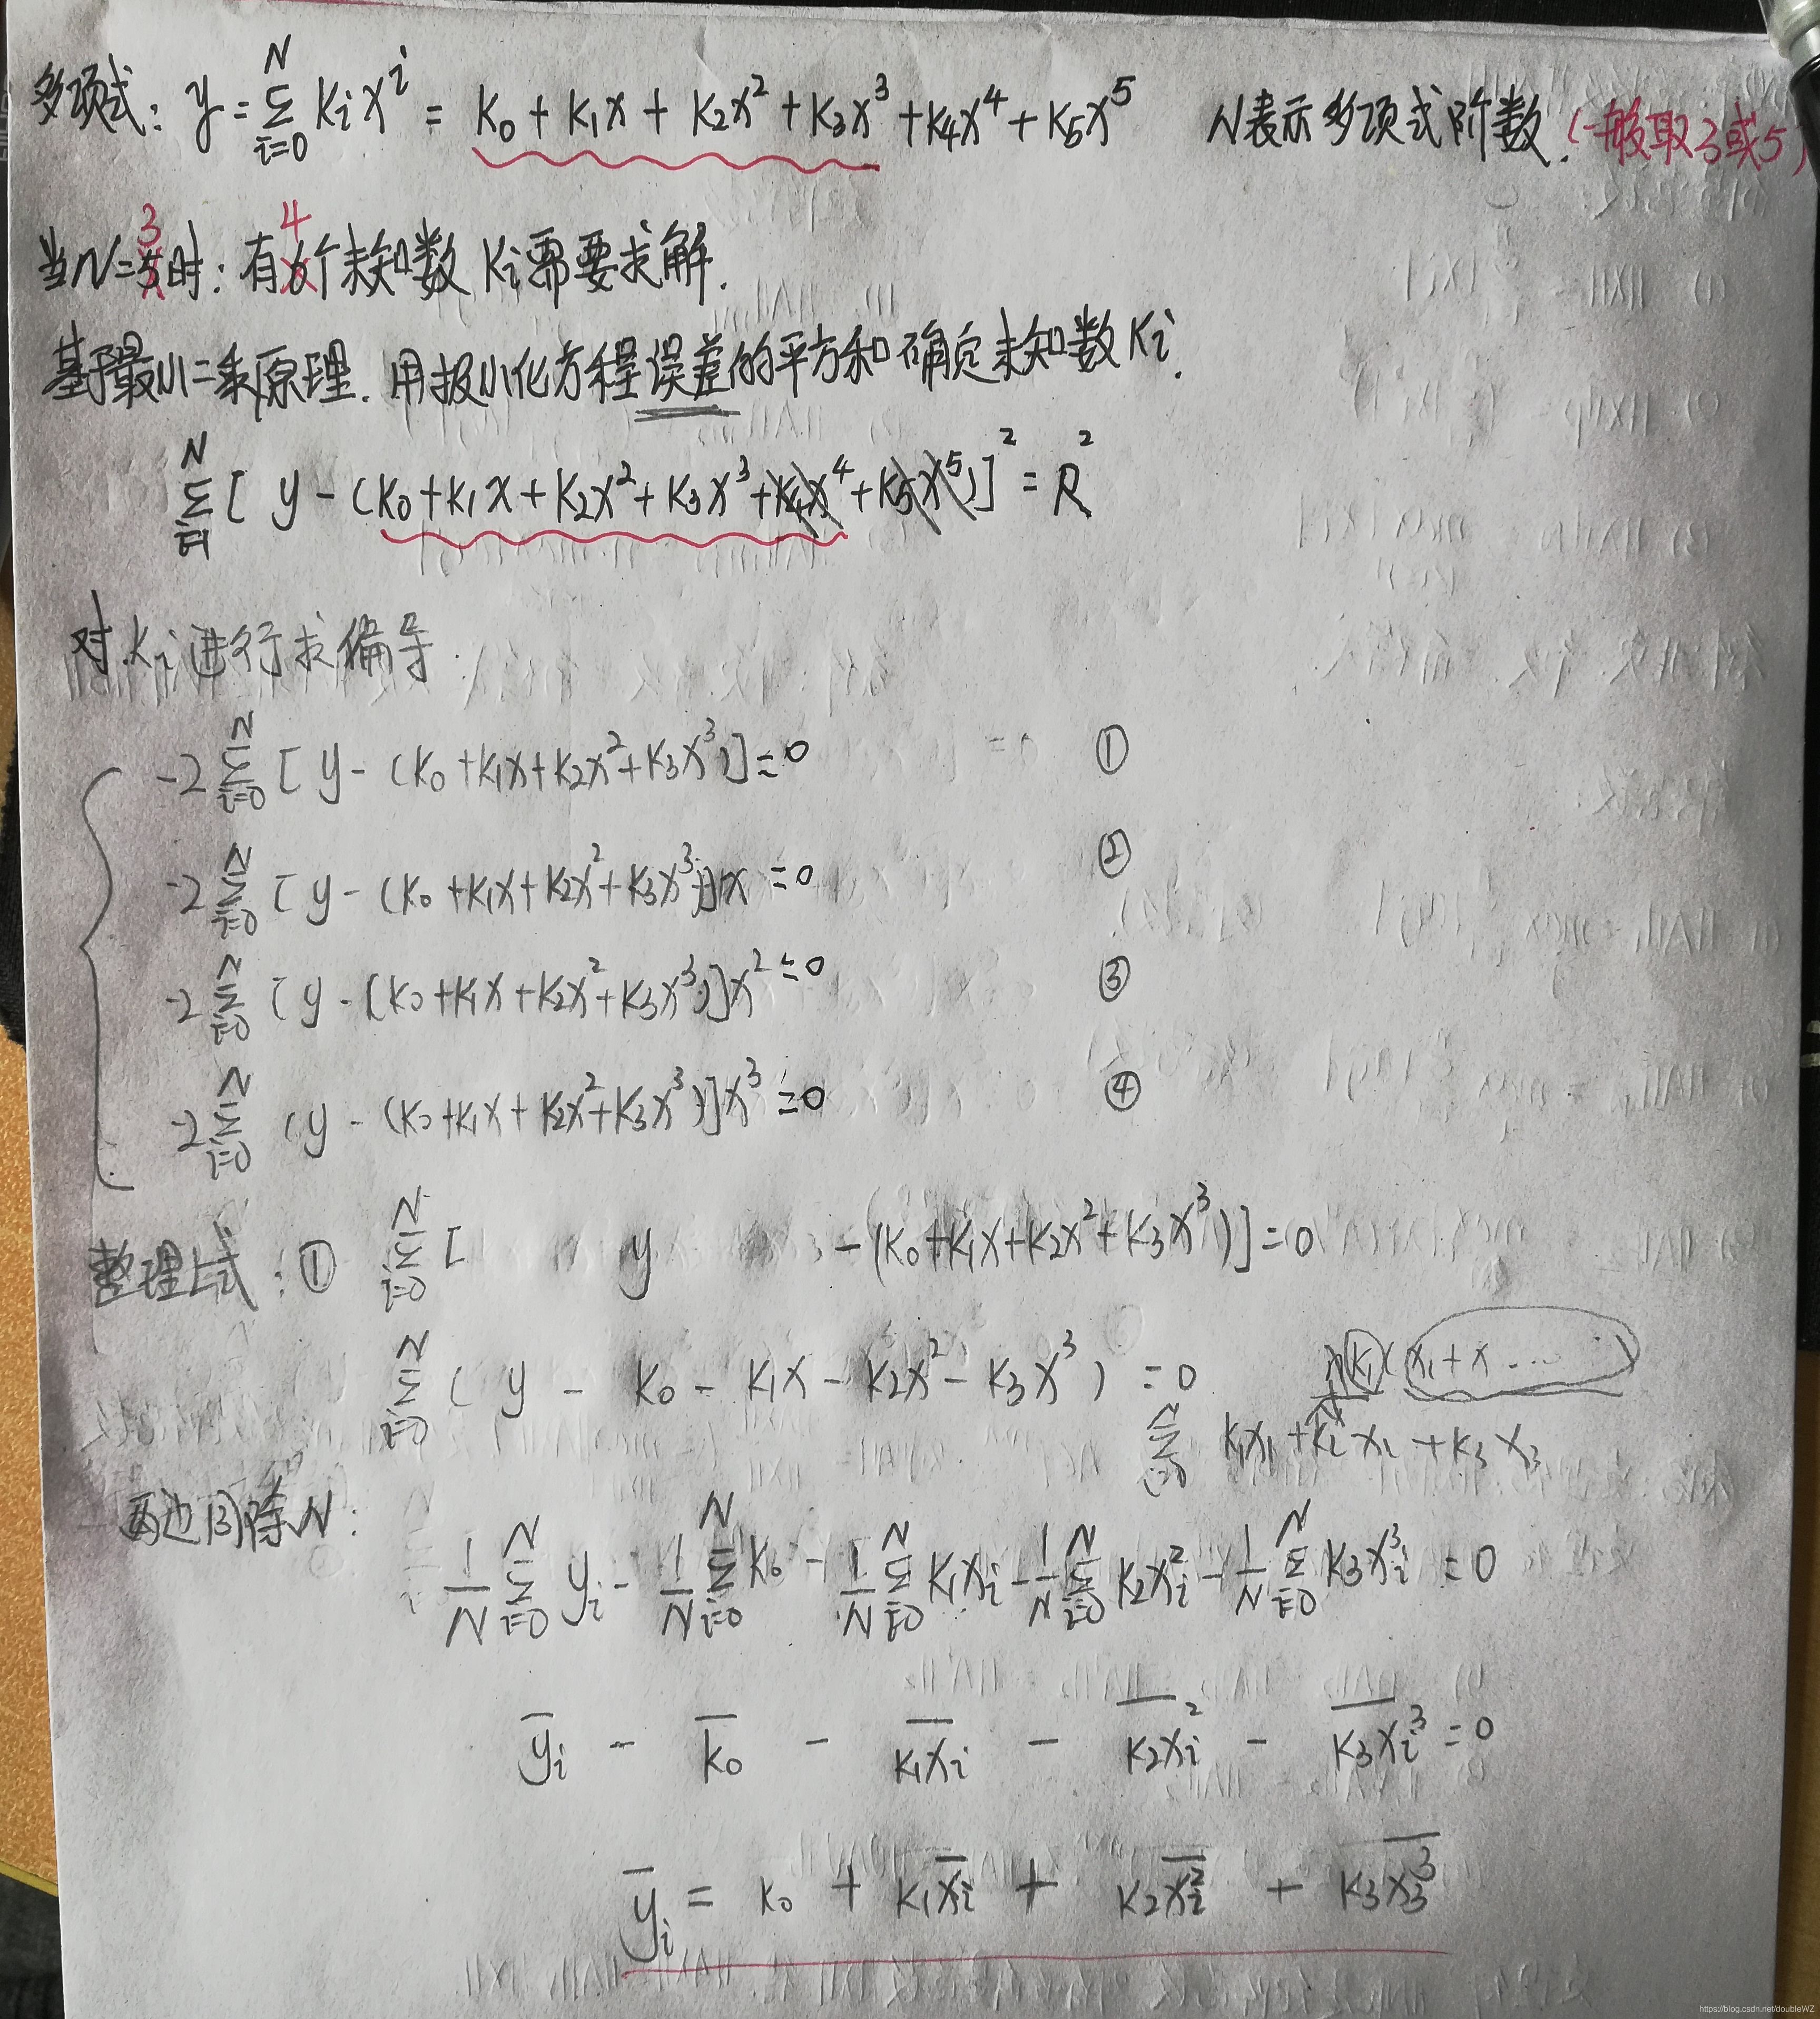 多项式: y = Σ_{i=0}^{N} Kᵢxⁱ = K₀ + K₁x + K₂x² + K₃x³ + K₄x⁴ + K₅x⁵ N表示多项式阶数.(一般取3或5)
3 4
当N=5时: 有6个未知数 Kᵢ需要求解.
基于最小二乘原理. 用极小化方程误差的平方和确定未知数Kᵢ.
Σ_{i=1}^{N} [ y - (K₀+K₁x+K₂x²+K₃x³+K₄x⁴+K₅x⁵)]² = R²
对Kᵢ进行求偏导:
-2 Σ_{i=0}^{N} [ y - (K₀+K₁x+K₂x²+K₃x³)]=0 ①
-2 Σ_{i=0}^{N} [ y - (K₀+K₁x+K₂x²+K₃x³)]x =0 ②
-2 Σ_{i=0}^{N} [ y - [K₀+K₁x+K₂x²+K₃x³)]x² =0 ③
-2 Σ_{i=0}^{N} ( y - (K₀+K₁x+K₂x²+K₃x³)]x³ =0 ④
整理上式: ① Σ_{i=0}^{N} [ y -(K₀+K₁x+K₂x²+K₃x³)]=0
Σ_{i=0}^{N} ( y - K₀ - K₁x - K₂x² - K₃x³ ) =0
(x₁+x ...
K₁x₁ + x₂ + K₃ x₃
两边同除N:
1/N Σ_{i=0}^{N} yᵢ - 1/N Σ_{i=0}^{N} K₀ - 1/N Σ_{i=0}^{N} K₁xᵢ - 1/N Σ_{i=0}^{N} K₂xᵢ² - 1/N Σ_{i=0}^{N} K₃xᵢ³ = 0
y̅ᵢ - k̅₀ - \overline{K₁xᵢ} - \overline{K₂xᵢ²} - \overline{K₃xᵢ³} = 0
y̅ᵢ = K₀ + K₁\overline{xᵢ} + K₂\overline{xᵢ²} + \overline{K₃x₃³}
https://blog.csdn.net/doubleWZ